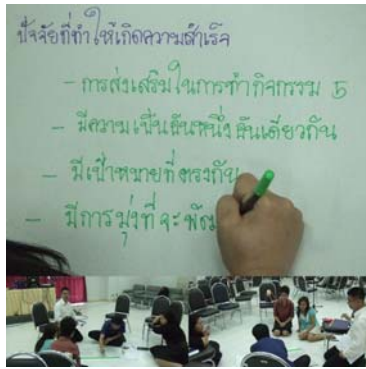 ปัจจัยที่ทำให้เกิดความสำเร็จ
- การส่งเสริมในการทำกิจกรรม 5
- มีความเป็นอันหนึ่งอันเดียวกัน
- มีเป้าหมายที่ตรงกัน
- มีการมุ่งที่จะพัฒ